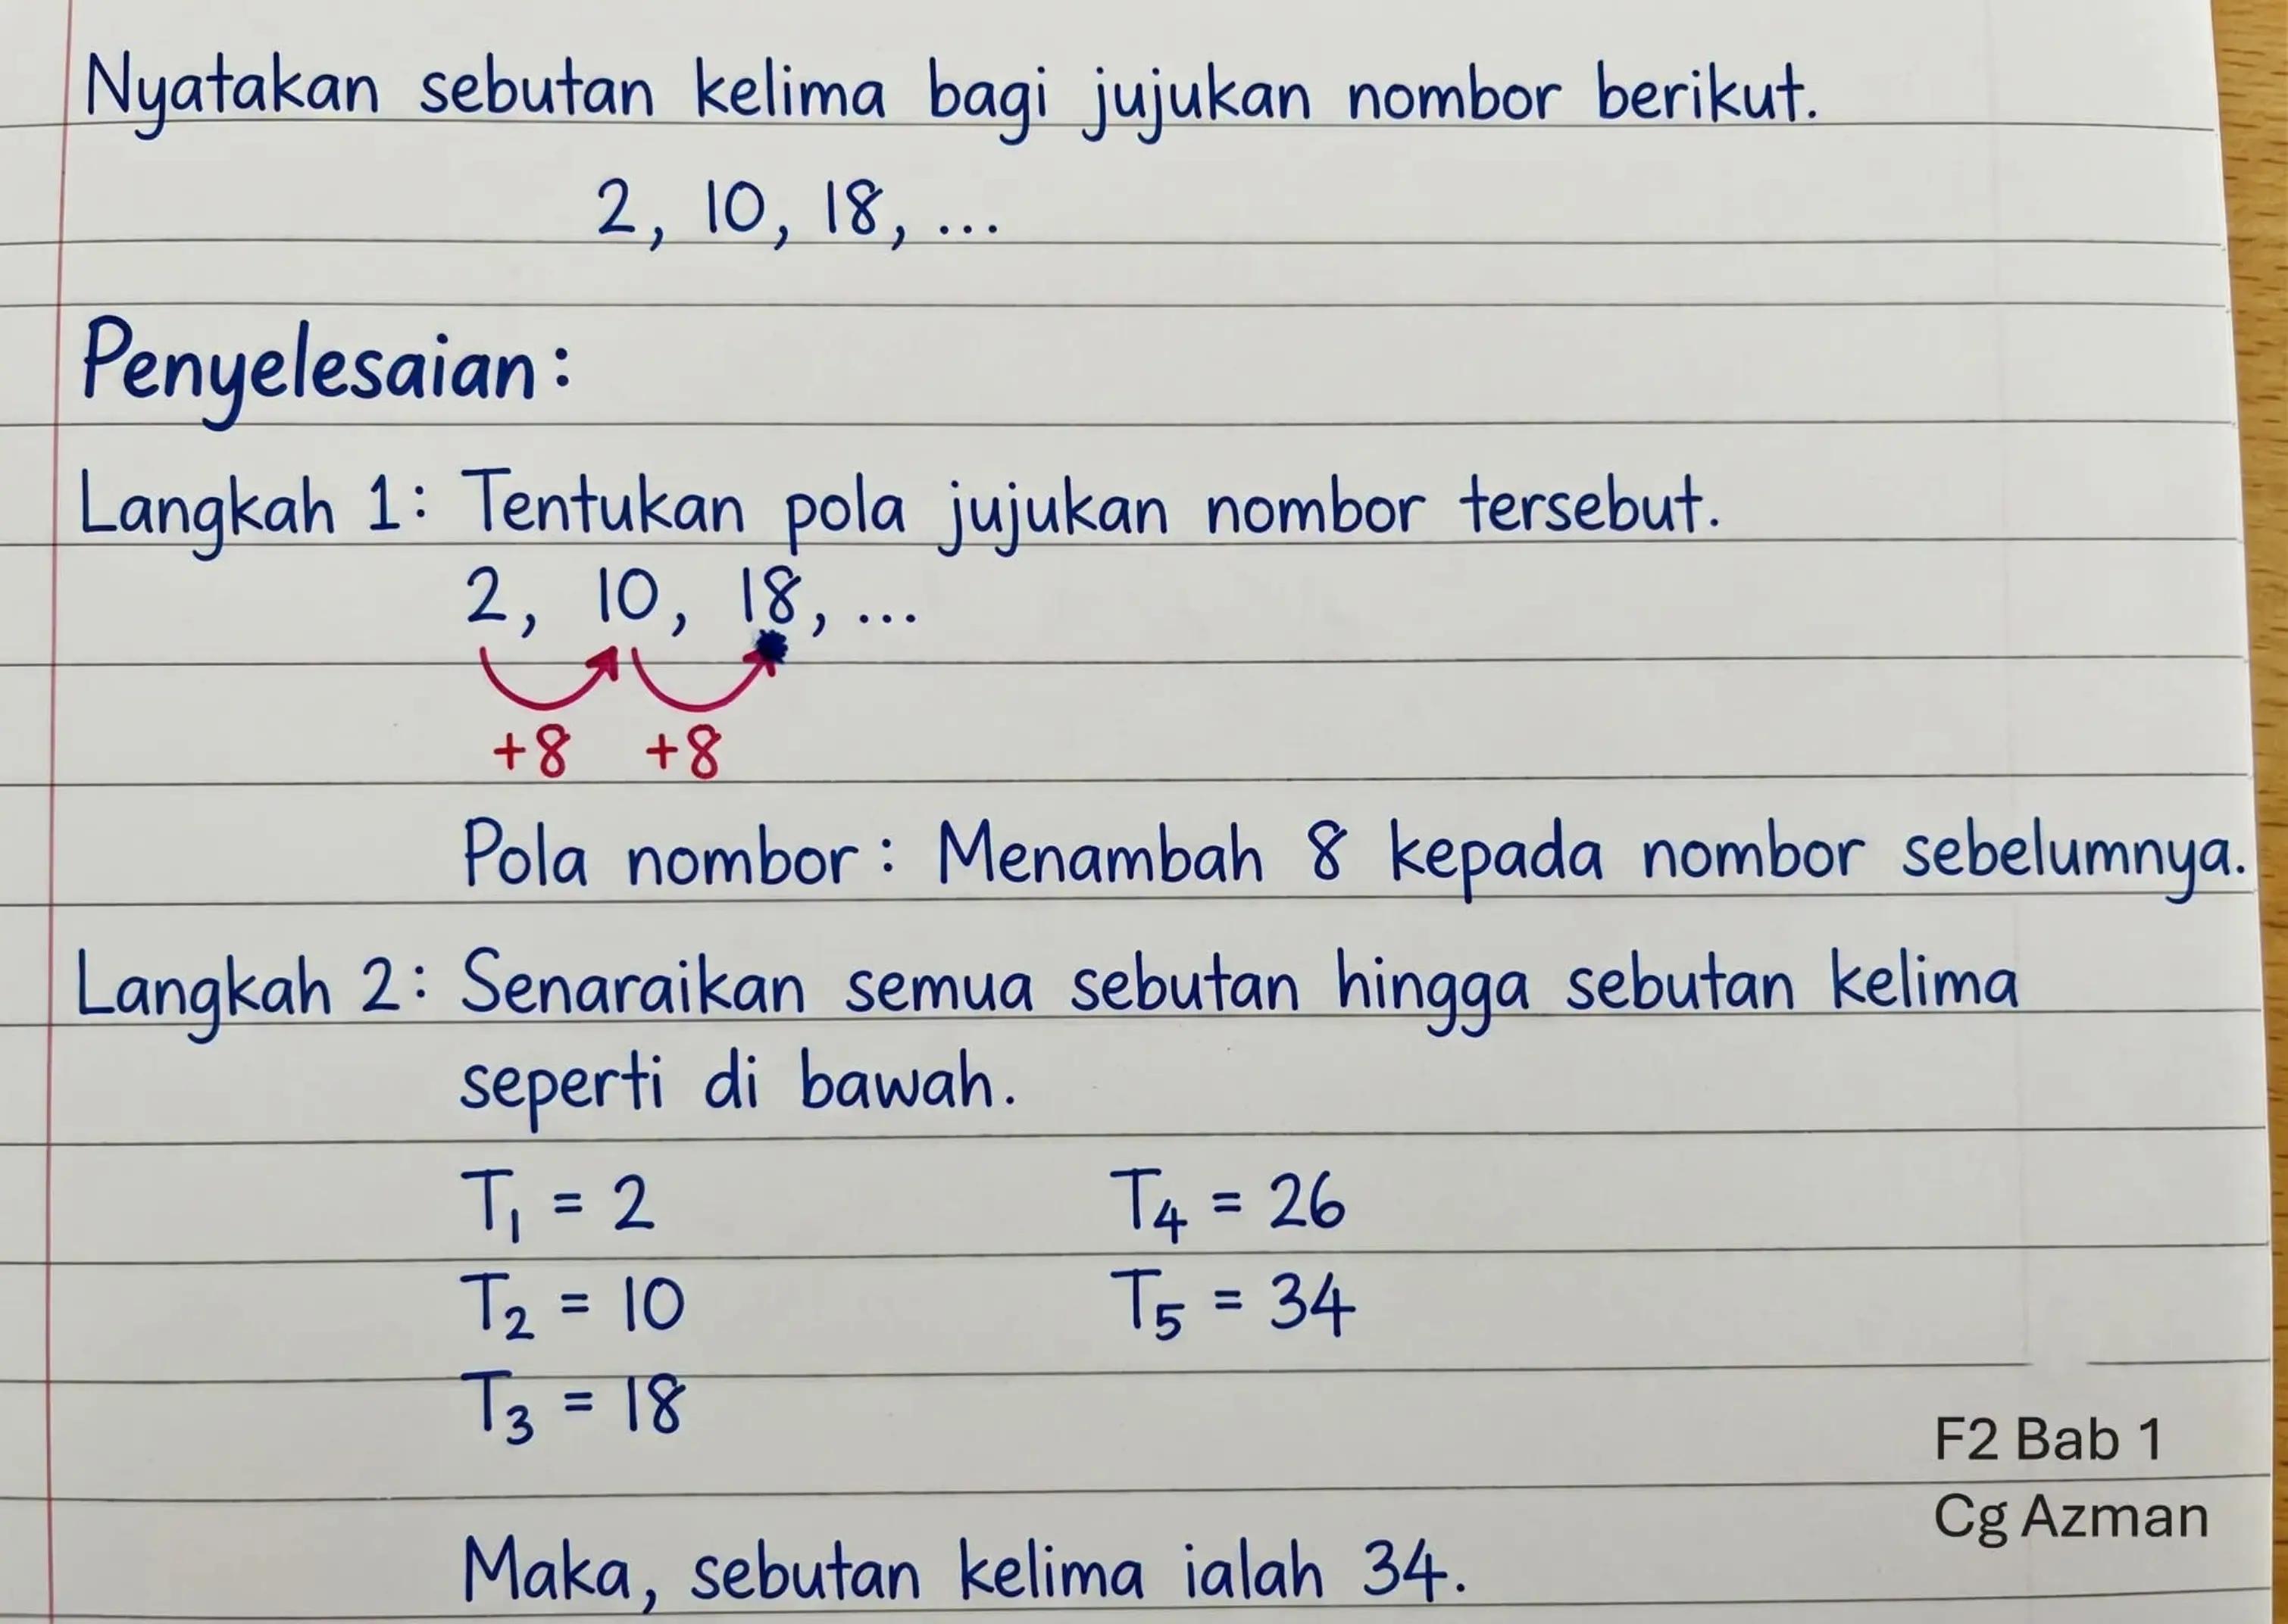 Nyatakan sebutan kelima bagi jujukan nombor berikut.
2, 10, 18, ...
Penyelesaian:
Langkah 1: Tentukan pola jujukan nombor tersebut.
2, 10, 18, ...
+8 +8
Pola nombor: Menambah 8 kepada nombor sebelumnya.
Langkah 2: Senaraikan semua sebutan hingga sebutan kelima
seperti di bawah.
T₁ = 2 T₄ = 26
T₂ = 10 T₅ = 34
T₃ = 18
F2 Bab 1
Cg Azman
Maka, sebutan kelima ialah 34.